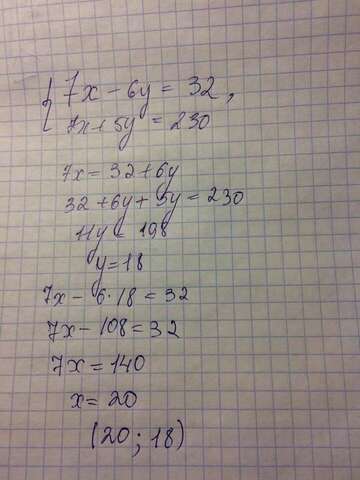 { 7x - 6y = 32,
7x + 5y = 230
7x = 32 + 6y
32 + 6y + 5y = 230
11y = 198
y = 18
7x - 6 · 18 = 32
7x - 108 = 32
7x = 140
x = 20
(20 ; 18)